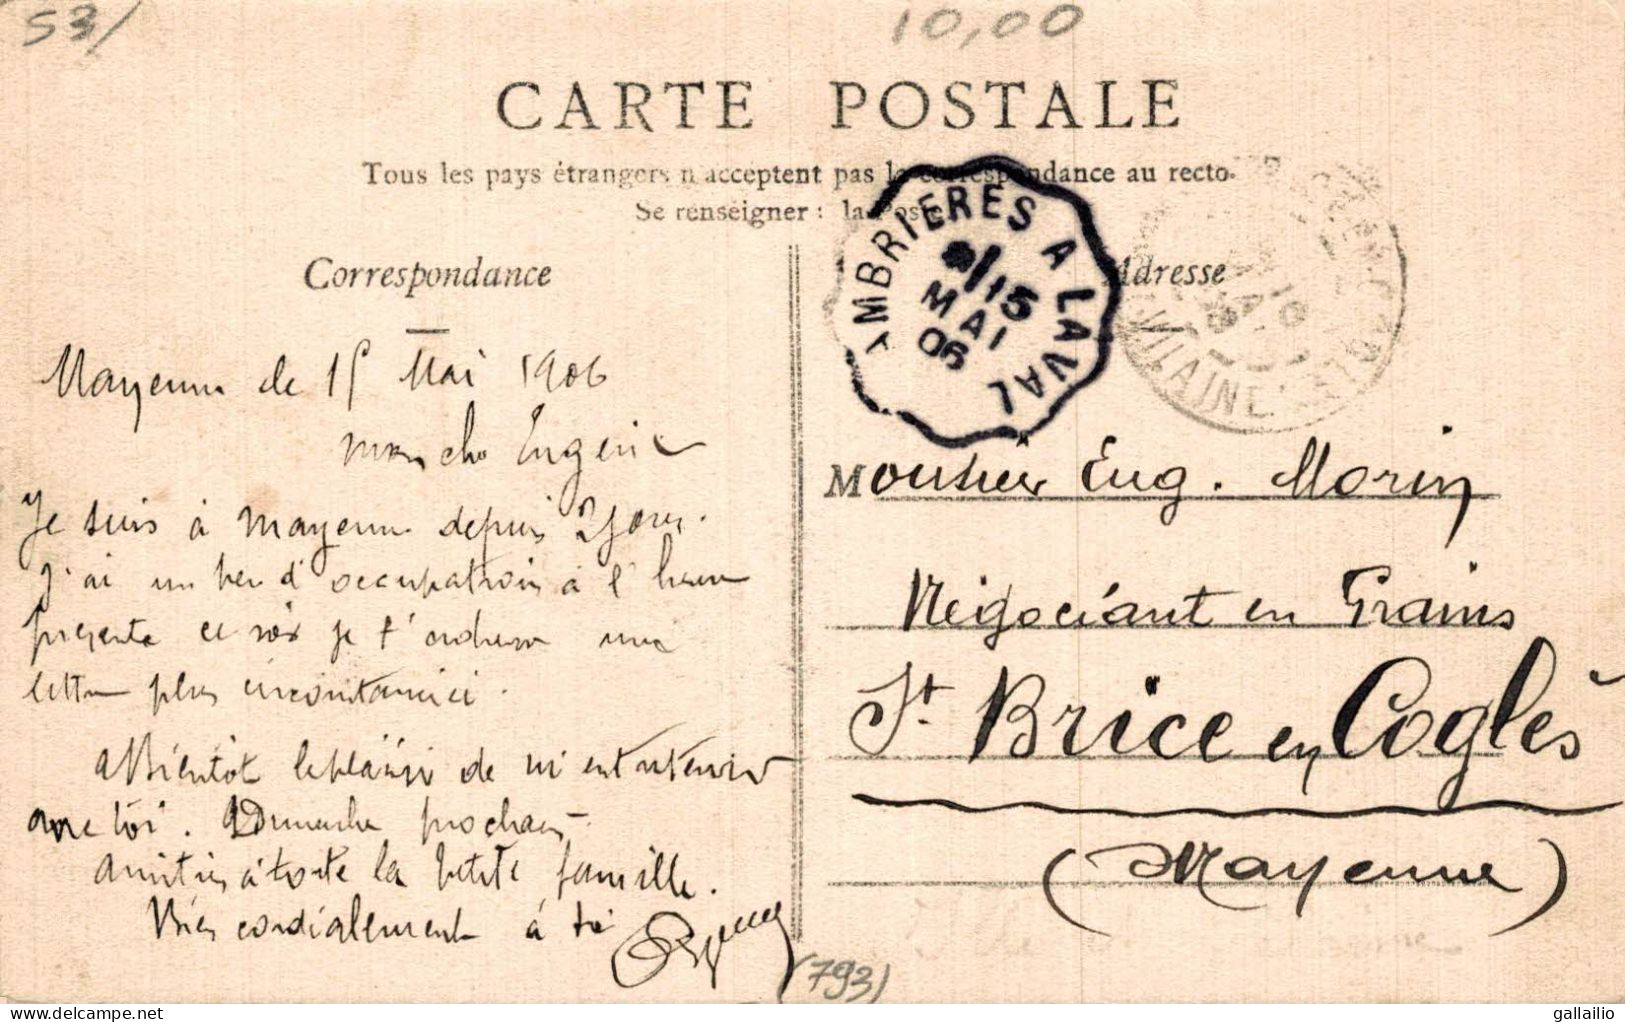 53/
10,00
CARTE POSTALE
Tous les pays étrangers n'acceptent pas la correspondance au recto.
Se renseigner : la Poste
Correspondance
Adresse
AMBRIERES A LAVAL
15
MAI
06
VILAINE
Mayenne le 15 Mai 1906
mon cher Eugène
Je suis à Mayenne depuis 2 jours.
J'ai un peu d'occupation à l'heure
présente ce soir je t'
une
lettre plus circonstanciée.
à Bientôt le plaisir de m'entretenir
avec toi. Dimanche prochain
Amitiés à toute la petite famille.
Bien cordialement à toi
Monsieur Eug. Morin
Négociant en Grains
St. Brice en Coglès
(Mayenne)
(793)
delcampe.net
gallailio